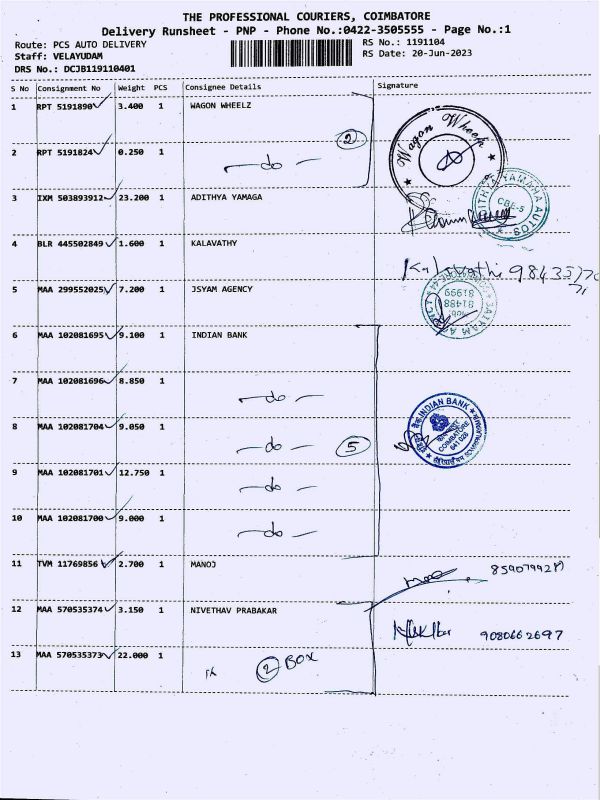 THE PROFESSIONAL COURIERS, COIMBATORE
Delivery Runsheet - PNP - Phone No.:0422-3505555 - Page No.:1
Route: PCS AUTO DELIVERY
RS No.: 1191104
Staff: VELAYUDAM
RS Date: 20-Jun-2023
DRS No.: DCJB119110401
S No Consignment No Weight PCS Consignee Details Signature
1 RPT 5191890 3.400 1 WAGON WHEELZ
Wagon Wheelz
2
2 RPT 5191824 0.250 1 -do-
3 IXM 503893912 23.200 1 ADITHYA YAMAGA
CBE-5
4 BLR 445502849 1.600 1 KALAVATHY
5 MAA 299552025 7.200 1 JSYAM AGENCY
81488
81999
6 MAA 102081695 9.100 1 INDIAN BANK
7 MAA 102081696 8.850 1 -do-
8 MAA 102081704 9.050 1 -do- 5
INDIAN BANK
COIMBATORE
641 026
9 MAA 102081701 12.750 1 -do-
10 MAA 102081700 9.000 1 -do-
11 TVM 11769856 2.700 1 MANOJ
12 MAA 570535374 3.150 1 NIVETHAV PRABAKAR
9080662697
13 MAA 570535373 22.000 1 2 BOX